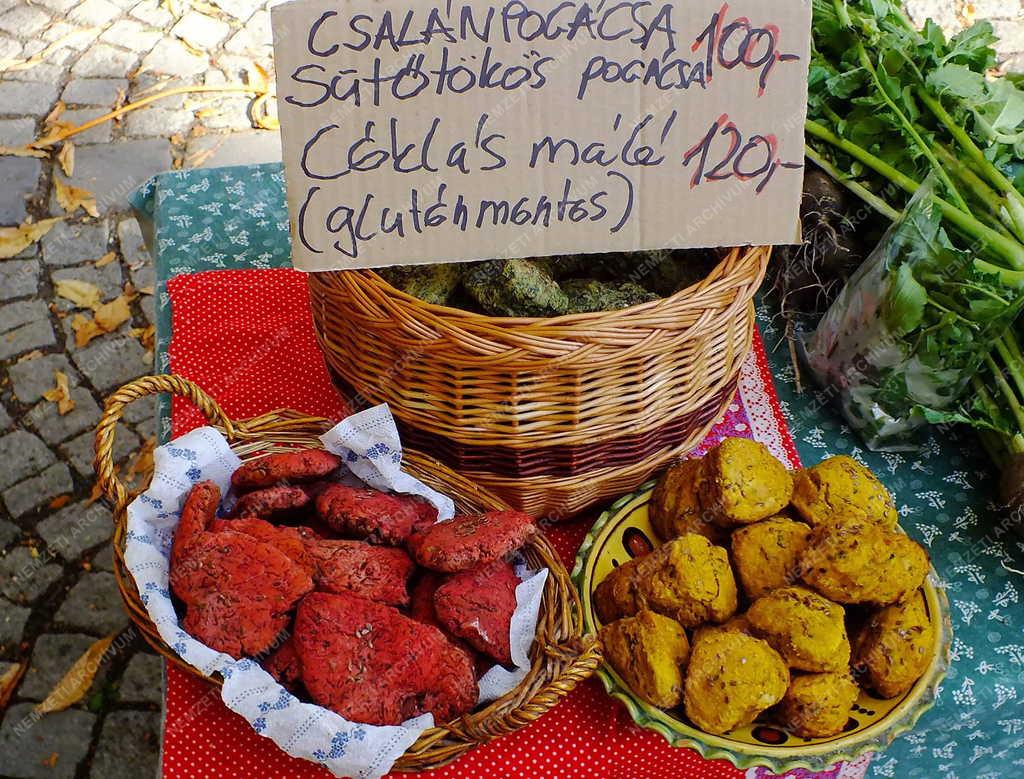 CSALÁNPOGÁCSA 100,-
SÜTŐTÖKÖS POGÁCSA
CÉKLÁS málé 120,-
(gluténmentes)
NEMZETI ARCHÍVUM